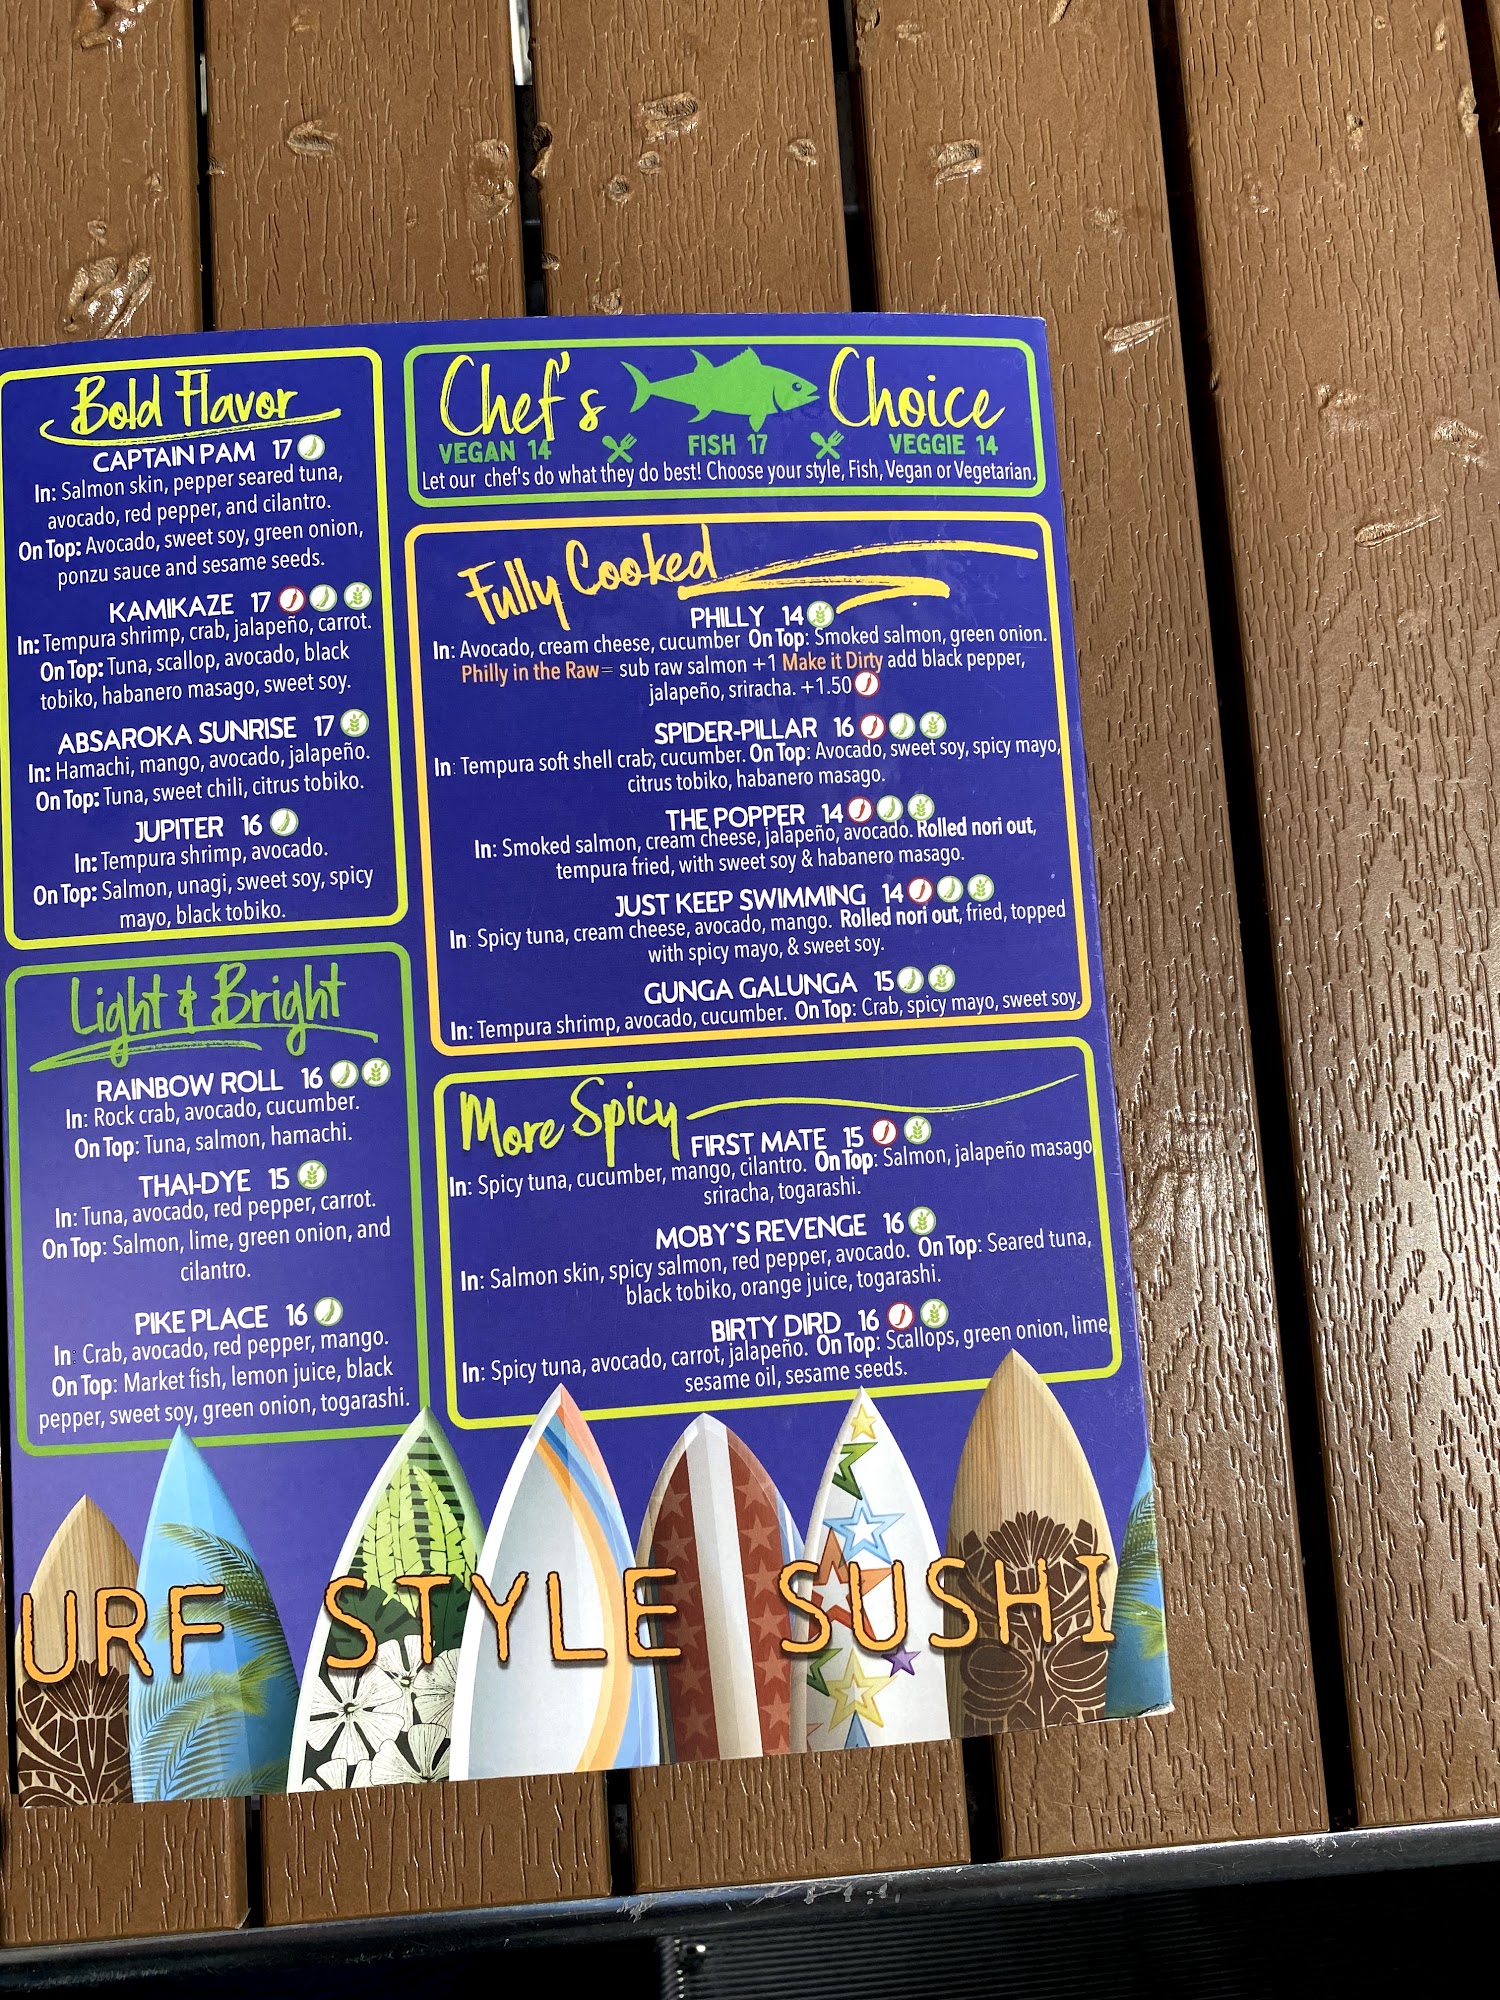 Bold Flavor
CAPTAIN PAM 17
In: Salmon skin, pepper seared tuna,
avocado, red pepper, and cilantro.
On Top: Avocado, sweet soy, green onion,
ponzu sauce and sesame seeds.
KAMIKAZE 17
In: Tempura shrimp, crab, jalapeño, carrot.
On Top: Tuna, scallop, avocado, black
tobiko, habanero masago, sweet soy.
ABSAROKA SUNRISE 17
In: Hamachi, mango, avocado, jalapeño.
On Top: Tuna, sweet chili, citrus tobiko.
JUPITER 16
In: Tempura shrimp, avocado.
On Top: Salmon, unagi, sweet soy, spicy
mayo, black tobiko.
Light & Bright
RAINBOW ROLL 16
In: Rock crab, avocado, cucumber.
On Top: Tuna, salmon, hamachi.
THAI-DYE 15
In: Tuna, avocado, red pepper, carrot.
On Top: Salmon, lime, green onion, and
cilantro.
PIKE PLACE 16
In: Crab, avocado, red pepper, mango.
On Top: Market fish, lemon juice, black
pepper, sweet soy, green onion, togarashi.
Chef's Choice
VEGAN 14 FISH 17 VEGGIE 14
Let our chef's do what they do best! Choose your style, Fish, Vegan or Vegetarian.
Fully Cooked
PHILLY 14
In: Avocado, cream cheese, cucumber On Top: Smoked salmon, green onion.
Philly in the Raw= sub raw salmon +1 Make it Dirty add black pepper,
jalapeño, sriracha. +1.50
SPIDER-PILLAR 16
In: Tempura soft shell crab, cucumber. On Top: Avocado, sweet soy, spicy mayo,
citrus tobiko, habanero masago.
THE POPPER 14
In: Smoked salmon, cream cheese, jalapeño, avocado. Rolled nori out,
tempura fried, with sweet soy & habanero masago.
JUST KEEP SWIMMING 14
In: Spicy tuna, cream cheese, avocado, mango. Rolled nori out, fried, topped
with spicy mayo, & sweet soy.
GUNGA GALUNGA 15
In: Tempura shrimp, avocado, cucumber. On Top: Crab, spicy mayo, sweet soy.
More Spicy
FIRST MATE 15
In: Spicy tuna, cucumber, mango, cilantro. On Top: Salmon, jalapeño masago,
sriracha, togarashi.
MOBY'S REVENGE 16
In: Salmon skin, spicy salmon, red pepper, avocado. On Top: Seared tuna,
black tobiko, orange juice, togarashi.
BIRTY DIRD 16
In: Spicy tuna, avocado, carrot, jalapeño. On Top: Scallops, green onion, lime,
sesame oil, sesame seeds.
URF STYLE SUSHI